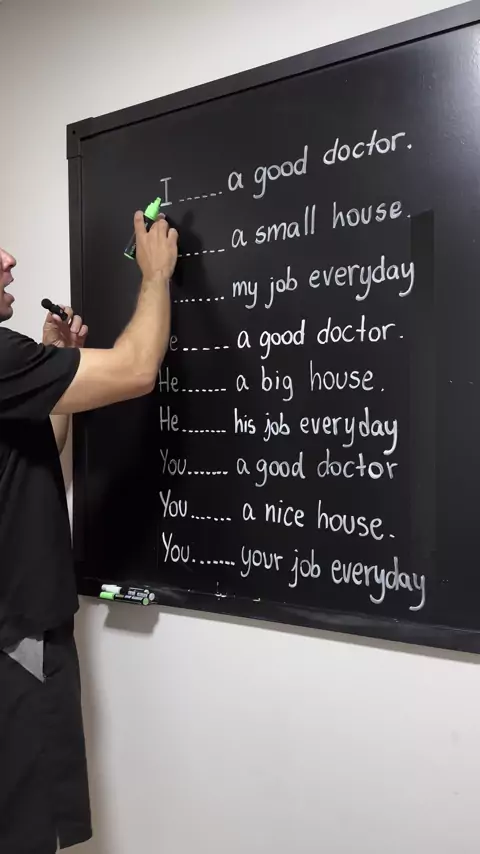 I ...... a good doctor.
...... a small house.
....... my job everyday
e...... a good doctor.
He....... a big house.
He....... his job everyday
You....... a good doctor
You....... a nice house.
You....... your job everyday